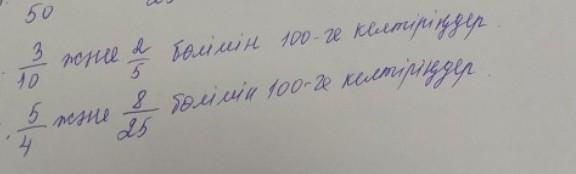 50
3/10 және 2/5 бөлімін 100-ге келтіріңдер.
5/4 және 8/25 бөлімін 100-ге келтіріңдер.